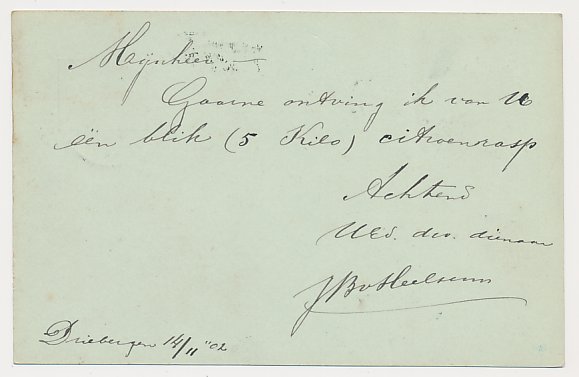 Mijnheer
Gaarne ontving ik van U
één blik (5 Kilo) citroenrasp
Achtend
UEd. dw. dienaar
JBvHeelsum
Driebergen 14/11 '02